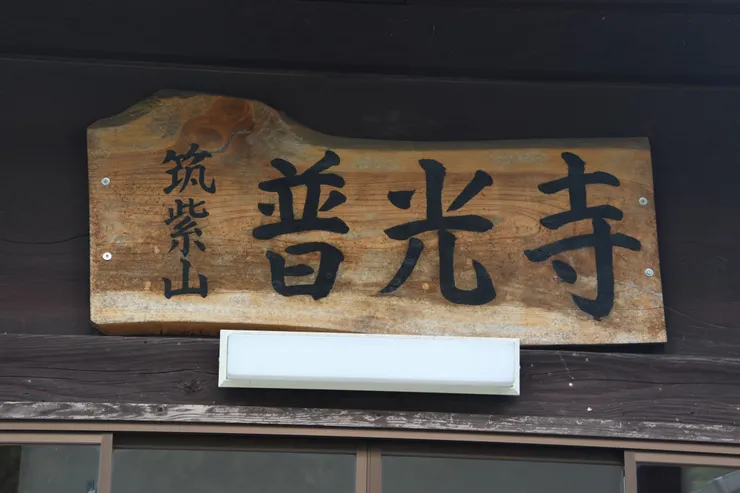 筑紫山
普光寺